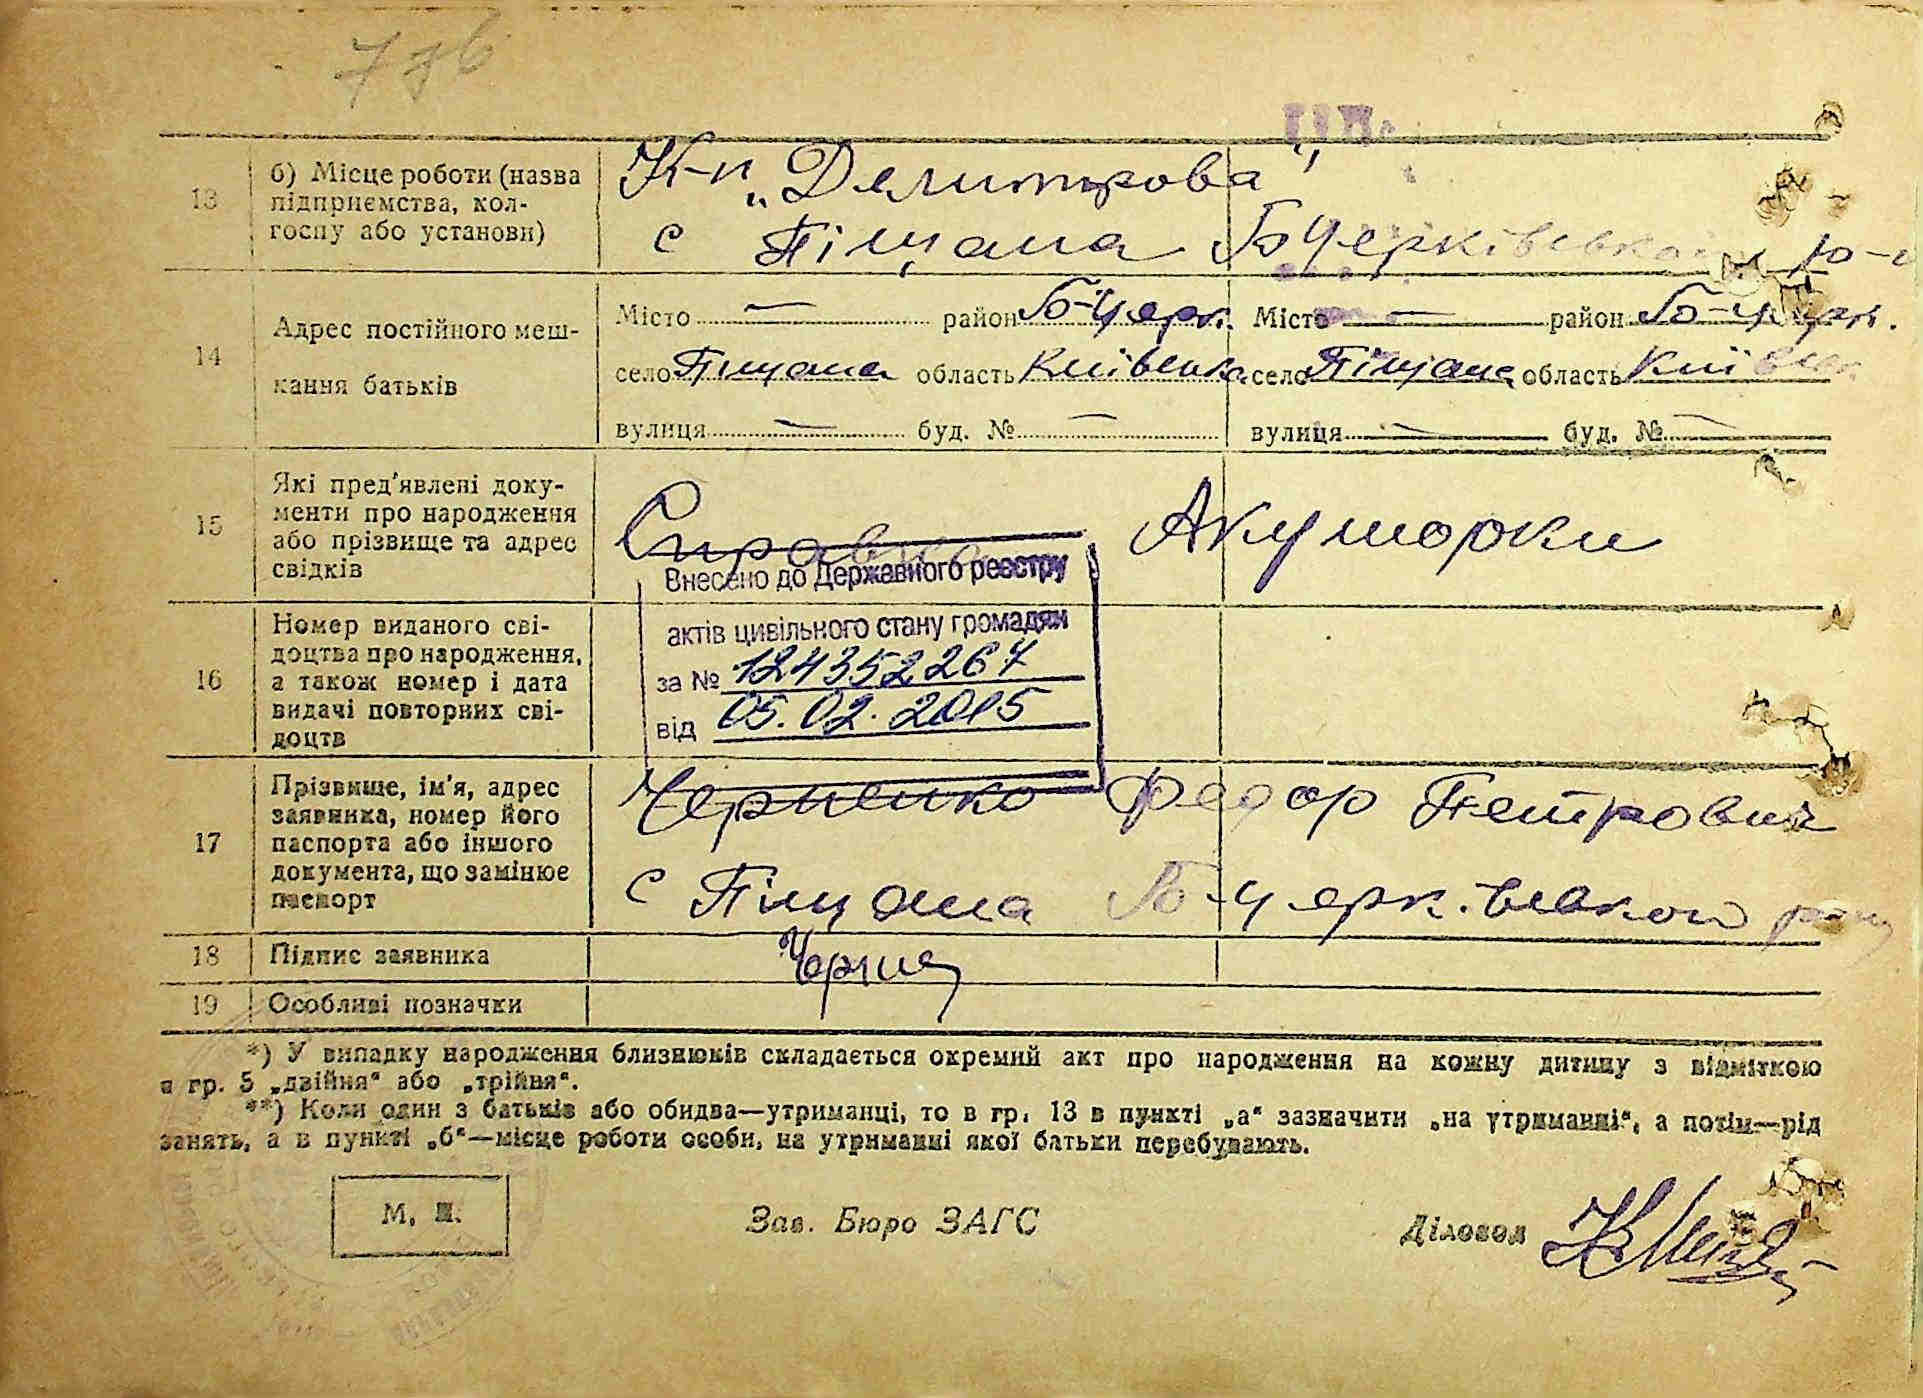 776
13
б) Місце роботи (назва підприємства, кол-
госпу або установи)
К-п „Демитрова"
с Піщана Б Черківської р-н
14
Адрес постійного меш-
кання батьків
Місто — район Б-Черк. Місто — район Б-Черк.
село Піщана область Київська село Піщана область Київськ
вулиця — буд. № — вулиця — буд. № —
15
Які пред'явлені доку-
менти про народження
або прізвище та адрес
свідків
Справка Акушорки
Внесено до Державного реєстру
актів цивільного стану громадян
за № 124352267
від 05.02.2015
16
Номер виданого сві-
доцтва про народження,
а також номер і дата
видачі повторних сві-
доцтв
17
Прізвище, ім'я, адрес
заявника, номер його
паспорта або іншого
документа, що замінює
паспорт
Черненко Федор Петрович
с Піщана Б-Черк.
18
Підпис заявника
19
Особливі позначки
*) У випадку народження близнюків складається окремий акт про народження на кожну дитину з відміткою
в гр. 5 „двійня" або „трійня".
**) Коли один з батьків або обидва—утриманці, то в гр. 13 в пункті „а" зазначити „на утриманні", а потім—рід
занять, а в пункті „б"—місце роботи особи, на утриманні якої батьки перебувають.
М. П.
Зав. Бюро ЗАГС
Діловод